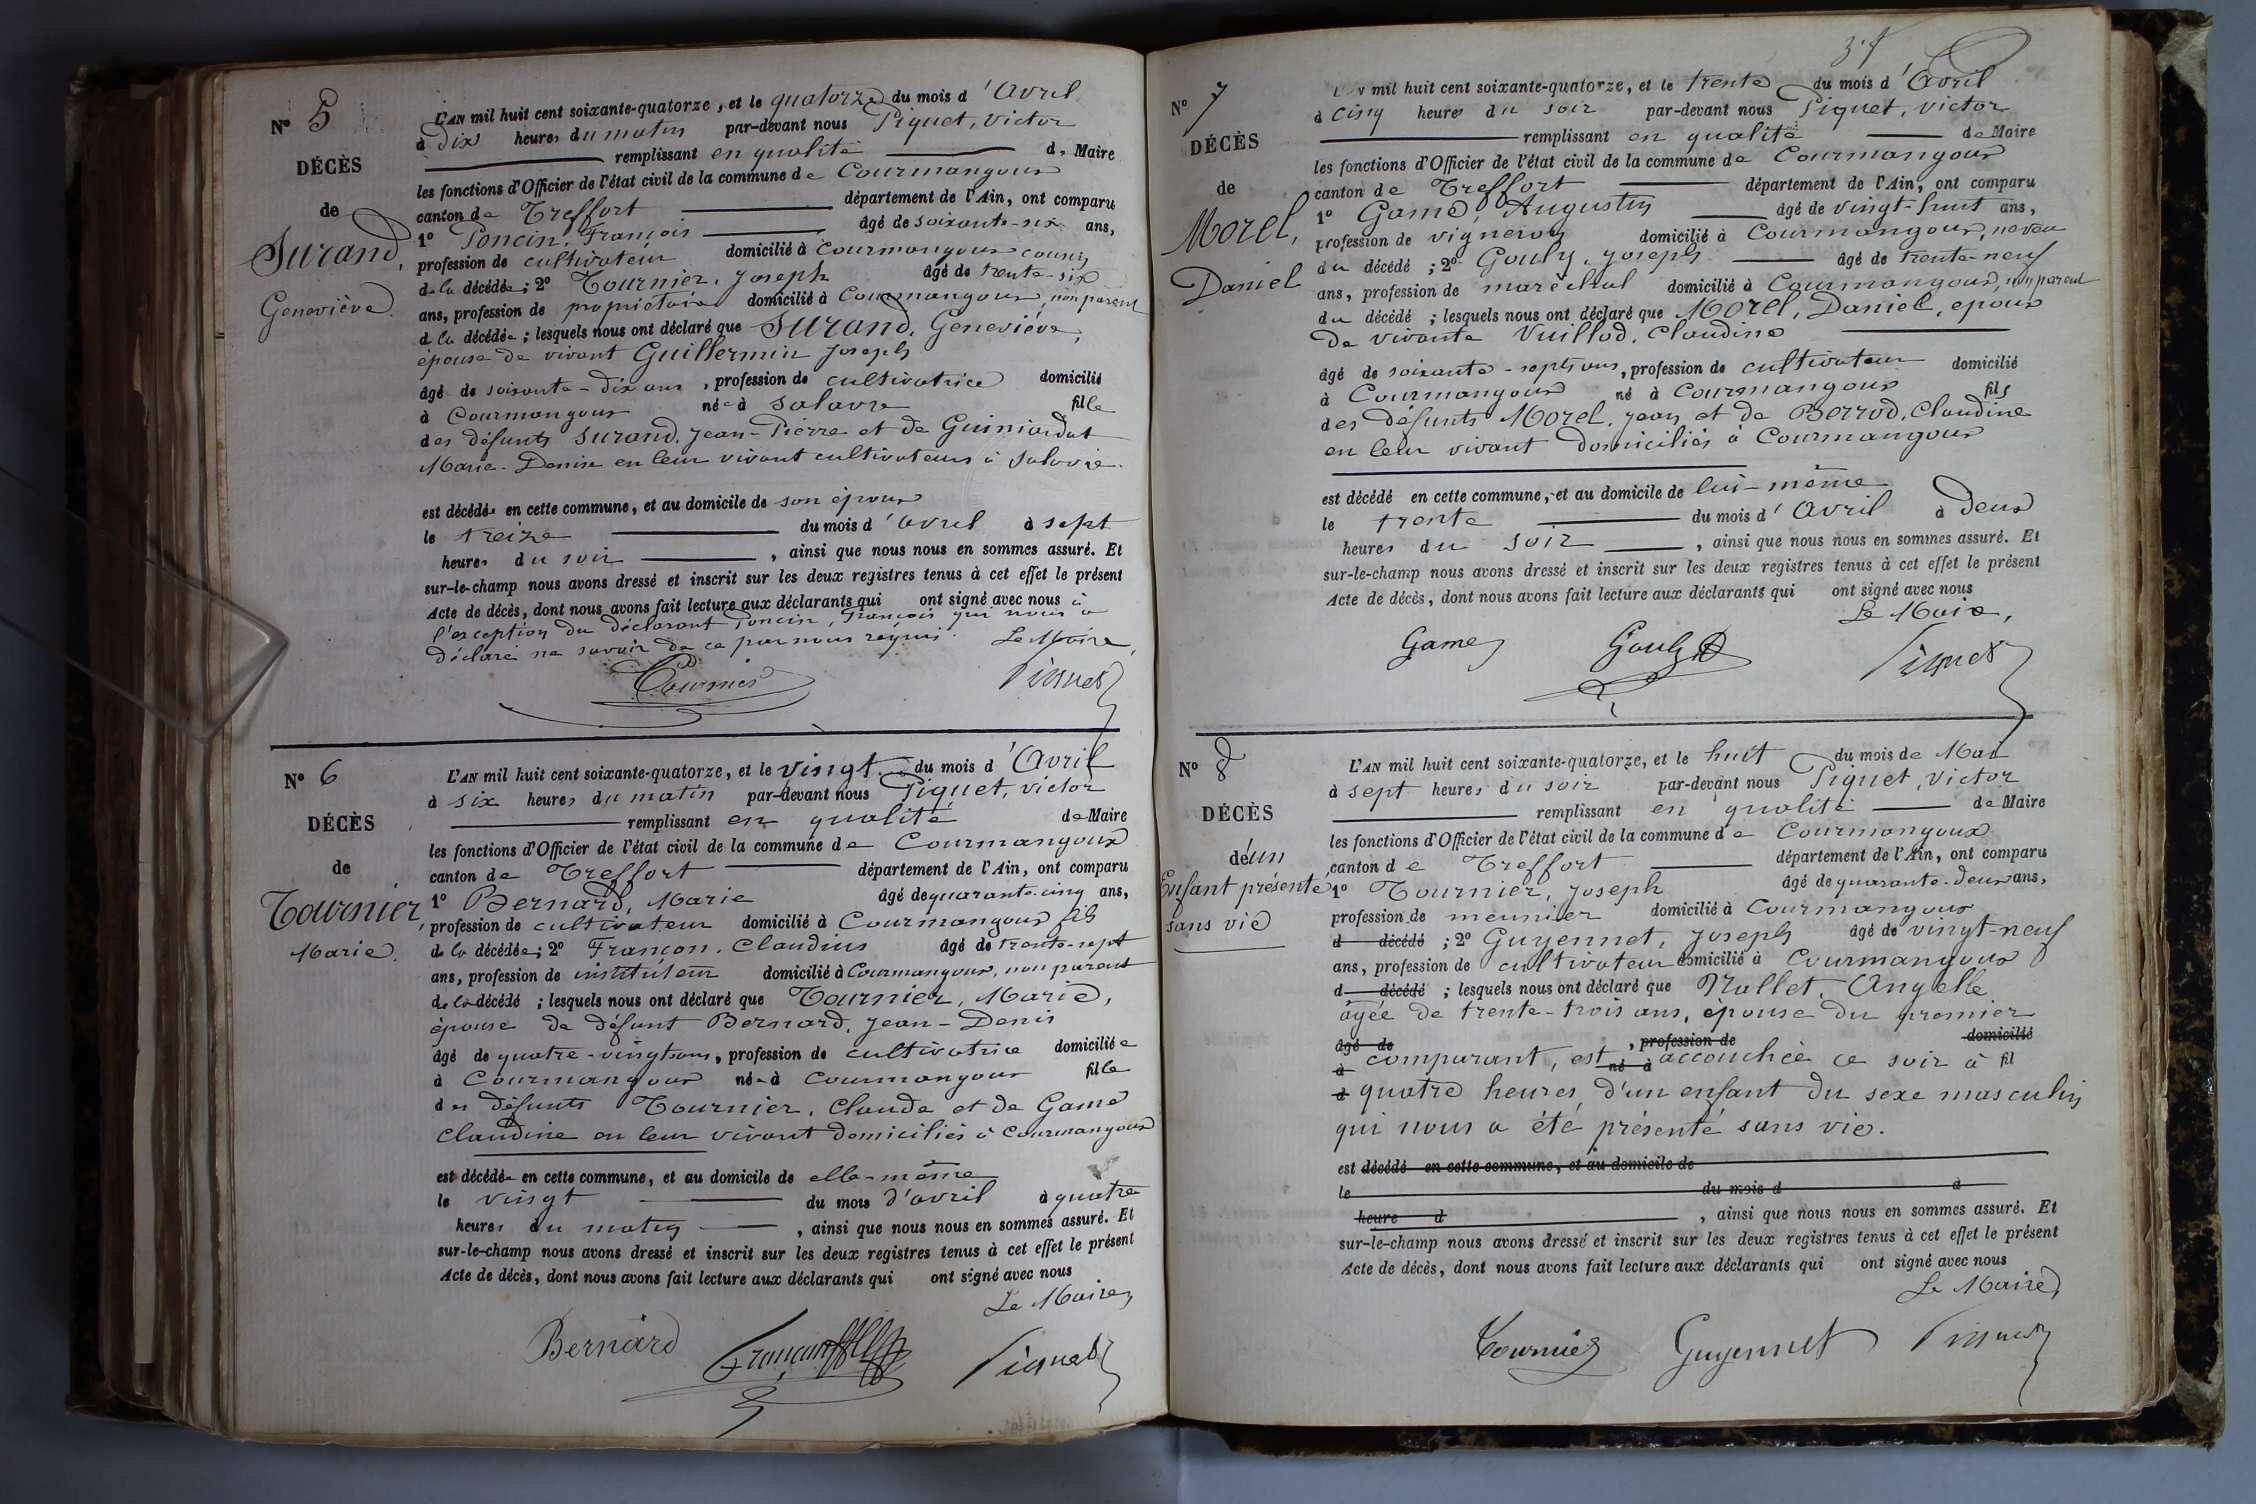 Nº 5
DÉCÈS
de
Surand,
Geneviève.
L'AN mil huit cent soixante-quatorze, et le quatorze du mois d'Avril
à dix heures du matin par-devant nous Piquet, victor
remplissant en qualité de Maire
les fonctions d'Officier de l'état civil de la commune de Courmangoux
canton de Treffort département de l'Ain, ont comparu
1º Poncin, François âgé de soixante-six ans,
profession de cultivateur domicilié à Courmangoux cousin
de la décédée; 2º Tournier, Joseph âgé de trente-six
ans, profession de propriétaire domicilié à Courmangoux, non parent
de la décédée; lesquels nous ont déclaré que Surand, Geneviève,
épouse de vivant Guillermin Joseph
âgé de soixante-dix ans, profession de cultivatrice domicilié
à Courmangoux née à Salavre fille
des défunts Surand, Jean-Pierre et de Guiniardat
Marie-Denise en leur vivant cultivateurs à Salavre.
est décédée en cette commune, et au domicile de son époux
le treize du mois d'avril à sept
heures du soir, ainsi que nous nous en sommes assuré. Et
sur-le-champ nous avons dressé et inscrit sur les deux registres tenus à cet effet le présent
Acte de décès, dont nous avons fait lecture aux déclarants qui ont signé avec nous à
l'exception du déclarant Poncin, François qui nous a
déclaré ne savoir de ce par nous requis. Le Maire,
Tournier Piquet
Nº 6
DÉCÈS
de
Tournier,
Marie.
L'AN mil huit cent soixante-quatorze, et le vingt du mois d'Avril
à six heures du matin par-devant nous Piquet, victor
remplissant en qualité de Maire
les fonctions d'Officier de l'état civil de la commune de Courmangoux
canton de Treffort département de l'Ain, ont comparu
1º Bernard, Marie âgé de quarante-cinq ans,
profession de cultivateur domicilié à Courmangoux fils
de la décédée; 2º Françon, Claudius âgé de trente-sept
ans, profession de instituteur domicilié à Courmangoux, non parent
de la décédé; lesquels nous ont déclaré que Tournier, Marie,
épouse de défunt Bernard, Jean-Denis
âgé de quatre-vingts ans, profession de cultivatrice domiciliée
à Courmangoux née à Courmangoux fille
des défunts Tournier, Claude et de Game
Claudine en leur vivant domiciliés à Courmangoux
est décédée en cette commune, et au domicile de elle-même
le vingt du mois d'avril à quatre
heures du matin, ainsi que nous nous en sommes assuré. Et
sur-le-champ nous avons dressé et inscrit sur les deux registres tenus à cet effet le présent
Acte de décès, dont nous avons fait lecture aux déclarants qui ont signé avec nous
Le Maire,
Bernard Françon Piquet
Nº 7
DÉCÈS
de
Morel,
Daniel
L'AN mil huit cent soixante-quatorze, et le trente du mois d'Avril
à cinq heures du soir par-devant nous Piquet, victor
remplissant en qualité de Maire
les fonctions d'Officier de l'état civil de la commune de Courmangoux
canton de Treffort département de l'Ain, ont comparu
1º Game, Augustin âgé de vingt-huit ans,
profession de vigneron domicilié à Courmangoux, neveu
du décédé; 2º Gouly, Joseph âgé de trente-neuf
ans, profession de maréchal domicilié à Courmangoux, non parent
du décédé; lesquels nous ont déclaré que Morel, Daniel, époux
de vivante Vuillod, Claudine
âgé de soixante-sept ans, profession de cultivateur domicilié
à Courmangoux né à Courmangoux fils
des défunts Morel, Jean et de Berrod, Claudine
en leur vivant domiciliés à Courmangoux
est décédé en cette commune, et au domicile de lui-même
le trente du mois d'Avril à deux
heures du soir, ainsi que nous nous en sommes assuré. Et
sur-le-champ nous avons dressé et inscrit sur les deux registres tenus à cet effet le présent
Acte de décès, dont nous avons fait lecture aux déclarants qui ont signé avec nous
Le Maire,
Game Gouly Piquet
Nº 8
DÉCÈS
d'un
Enfant présenté
sans vie
L'AN mil huit cent soixante-quatorze, et le huit du mois de Mai
à sept heures du soir par-devant nous Piquet, victor
remplissant en qualité de Maire
les fonctions d'Officier de l'état civil de la commune de Courmangoux
canton de Treffort département de l'Ain, ont comparu
1º Tournier, Joseph âgé de quarante-deux ans,
profession de meunier domicilié à Courmangoux
d décédé; 2º Guyennet, Joseph âgé de vingt-neuf
ans, profession de cultivateur domicilié à Courmangoux
d décédé; lesquels nous ont déclaré que Nallet, Angelle
âgée de trente-trois ans, épouse du premier
âgé de, profession de domicilié
à comparant, est né à accouchée ce soir à fil
d quatre heures, d'un enfant du sexe masculin
qui nous a été présenté sans vie.
est décédé en cette commune, et au domicile de
le du mois d à
heure d, ainsi que nous nous en sommes assuré. Et
sur-le-champ nous avons dressé et inscrit sur les deux registres tenus à cet effet le présent
Acte de décès, dont nous avons fait lecture aux déclarants qui ont signé avec nous
Le Maire,
Tournier Guyennet Piquet